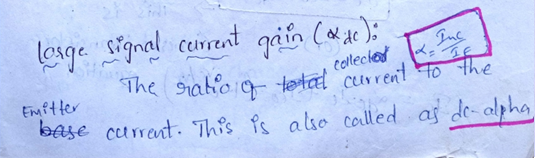 large signal current gain (αdc):
α = Inc / IE
The ratio of total collector current to the
Emitter
base current. This is also called as dc-alpha